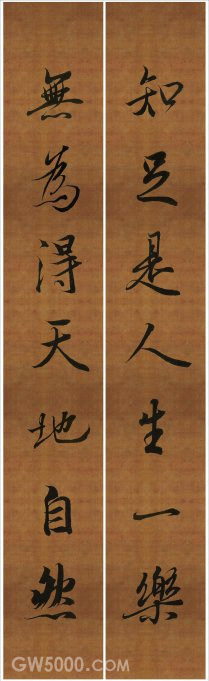 知足是人生一樂
無為得天地自然
GW5000.COM